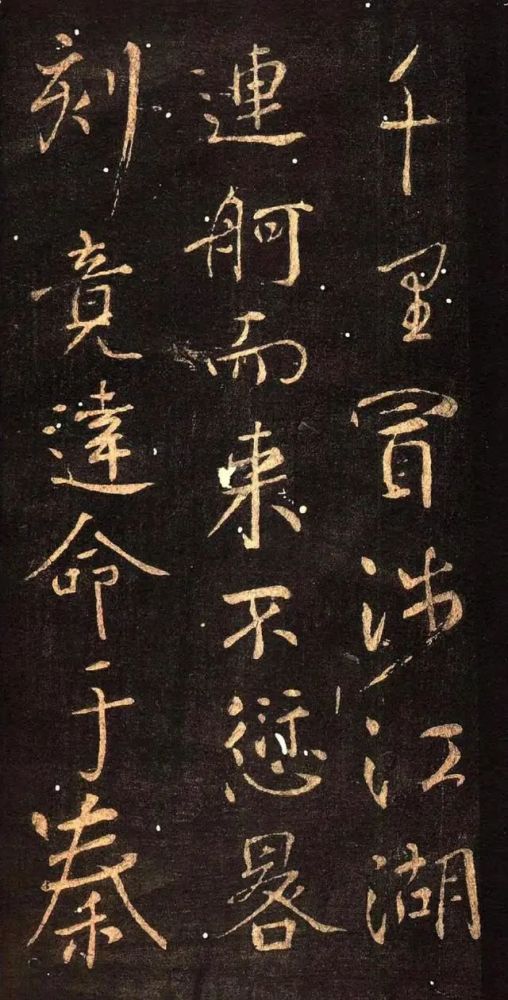 千里冒涉江湖
連舸而来不愆晷
刻竟達命于秦